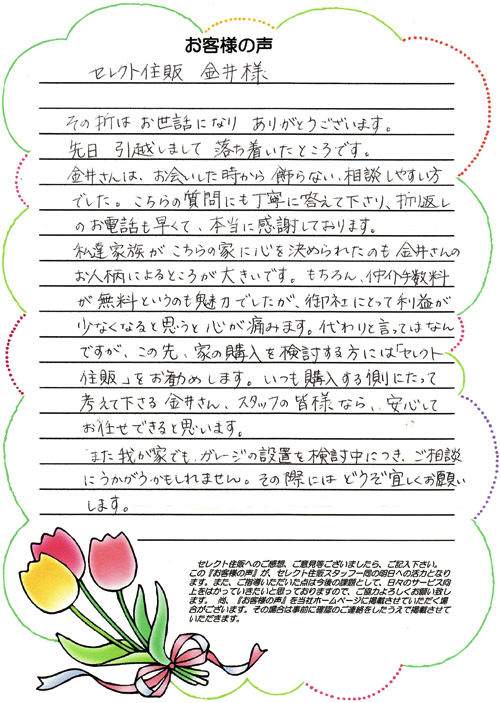 お客様の声
セレクト住販 金井様
その折は お世話になり ありがとうございます。
先日 引越しまして 落ち着いたところです。
金井さんは、お会いした時から 飾らない、相談しやすい方
でした。こちらの質問にも丁寧に答えて下さり、折り返し
のお電話も早くて、本当に感謝しております。
私達家族が こちらの家に心を決められたのも 金井さんの
お人柄によるところが大きいです。もちろん、仲介手数料
が無料というのも魅力でしたが、御社にとって利益が
少なくなると思うと心が痛みます。代わりと言ってはなん
ですが、この先、家の購入を検討する方には「セレクト
住販」をお勧めします。いつも購入する側にたって
考えて下さる 金井さん、スタッフの皆様なら、安心して
お任せできると思います。
また我が家でも、ガレージの設置を検討中につき、ご相談
にうかがうかもしれません。その際には どうぞ宜しくお願い
します。
セレクト住販へのご感想、ご意見等ございましたら、ご記入下さい。
この『お客様の声』が、セレクト住販スタッフ一同の明日への活力となり
ます。また、ご指導いただいた点は今後の課題として、日々のサービス向
上をはかっていきたいと思っておりますので、ご協力よろしくお願い致し
ます。 尚、『お客様の声』を当社ホームページに掲載させていただく場
合がございます。その場合は事前に確認のご連絡をしたうえで掲載させて
いただきます。